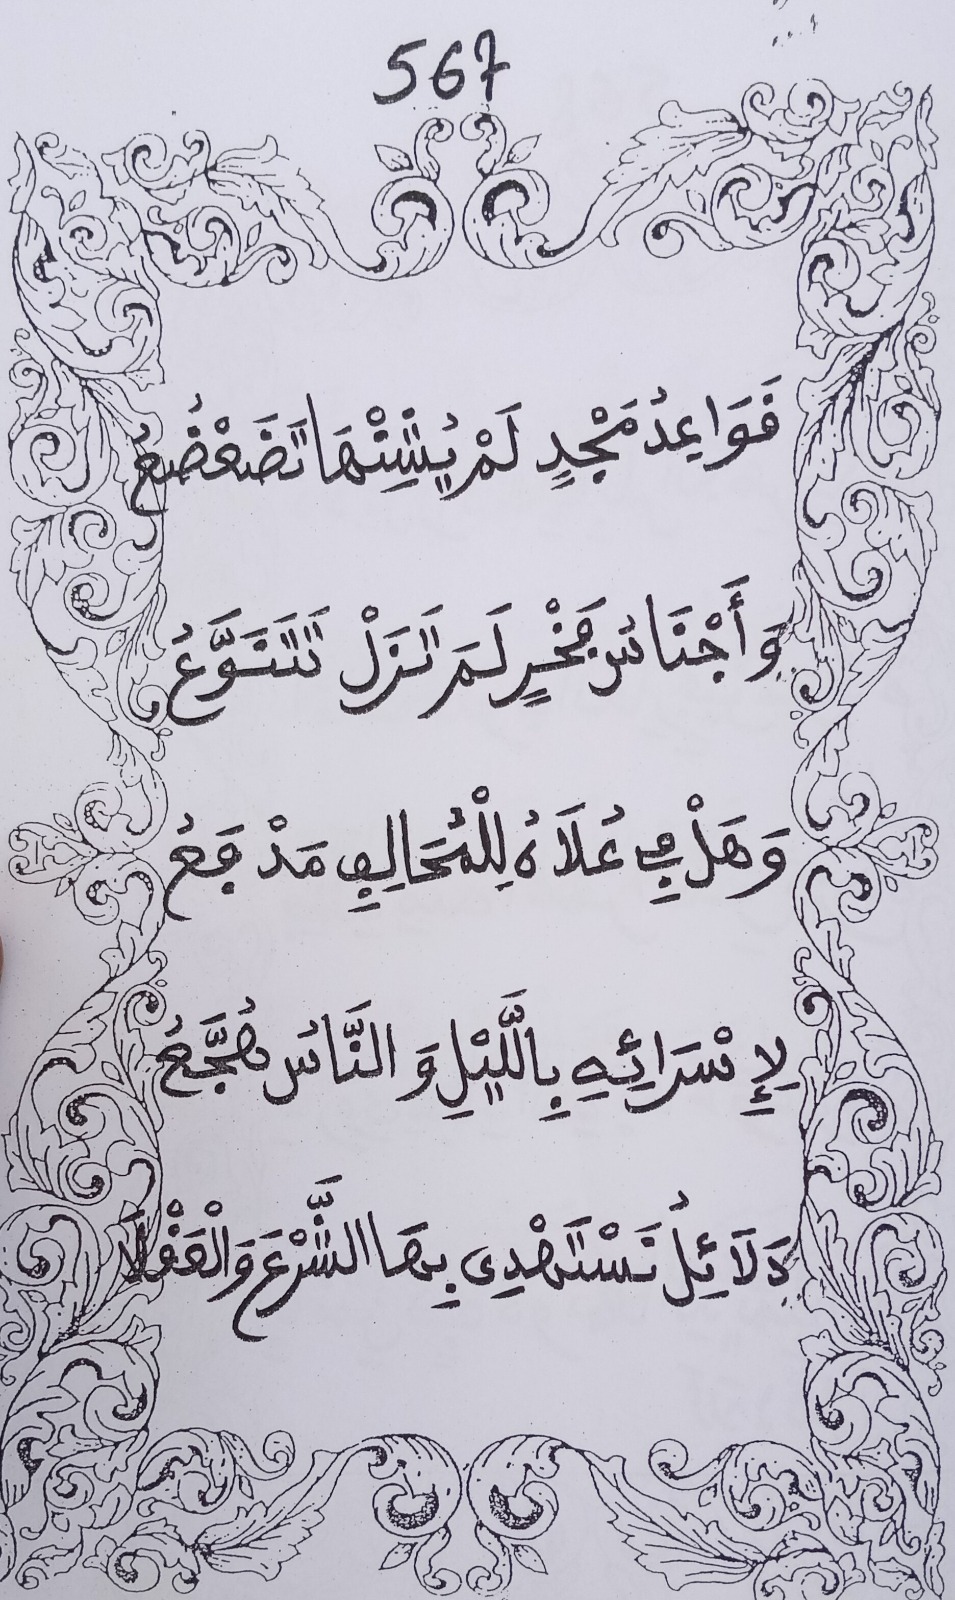 567
قَوَاعِدُ مَجْدٍ لَمْ يُشِنْهَا تَضَعْضُعُ
وَأَجْنَاسُ فَخْرٍ لَمْ تَزَلْ تَتَنَوَّعُ
وَهَلْ فِي عُلَاهُ لِلْمُخَالِفِ مَدْفَعُ
لِإِسْرَائِهِ بِاللَّيْلِ وَالنَّاسُ هُجَّعُ
دَلَائِلُ تَسْتَهْدِي بِهَا الشَّرْعَ وَالْعَقْلَا